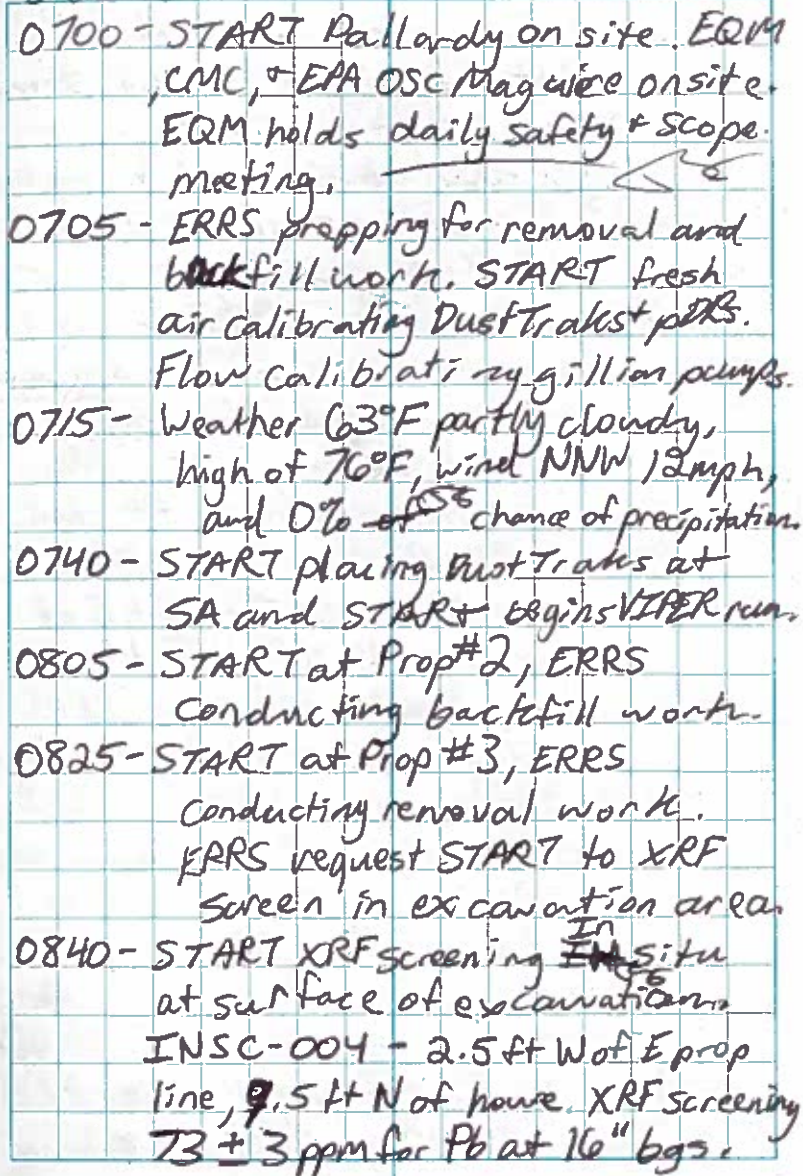 0700 - START Pallardy on site. EQM
, CMC, + EPA OSC Maguire onsite.
EQM holds daily safety + scope
meeting.
0705 - ERRS prepping for removal and
backfill work. START fresh
air calibrating DustTraks + pDRs.
Flow calibrating gillian pumps.
0715 - Weather 63°F partly cloudy,
high of 76°F, wind NNW 12mph,
and 0% of chance of precipitation.
0740 - START placing DustTraks at
SA and START begins VIPER run.
0805 - START at Prop #2, ERRS
Conducting backfill work.
0825 - START at Prop #3, ERRS
conducting removal work.
ERRS request START to XRF
screen in excavation area.
0840 - START XRF screening In Situ
at surface of excavation.
INSC-004 - 2.5 ft W of E prop
line, 9.5 ft N of house. XRF screening
73 ± 3 ppm for Pb at 16" bgs.